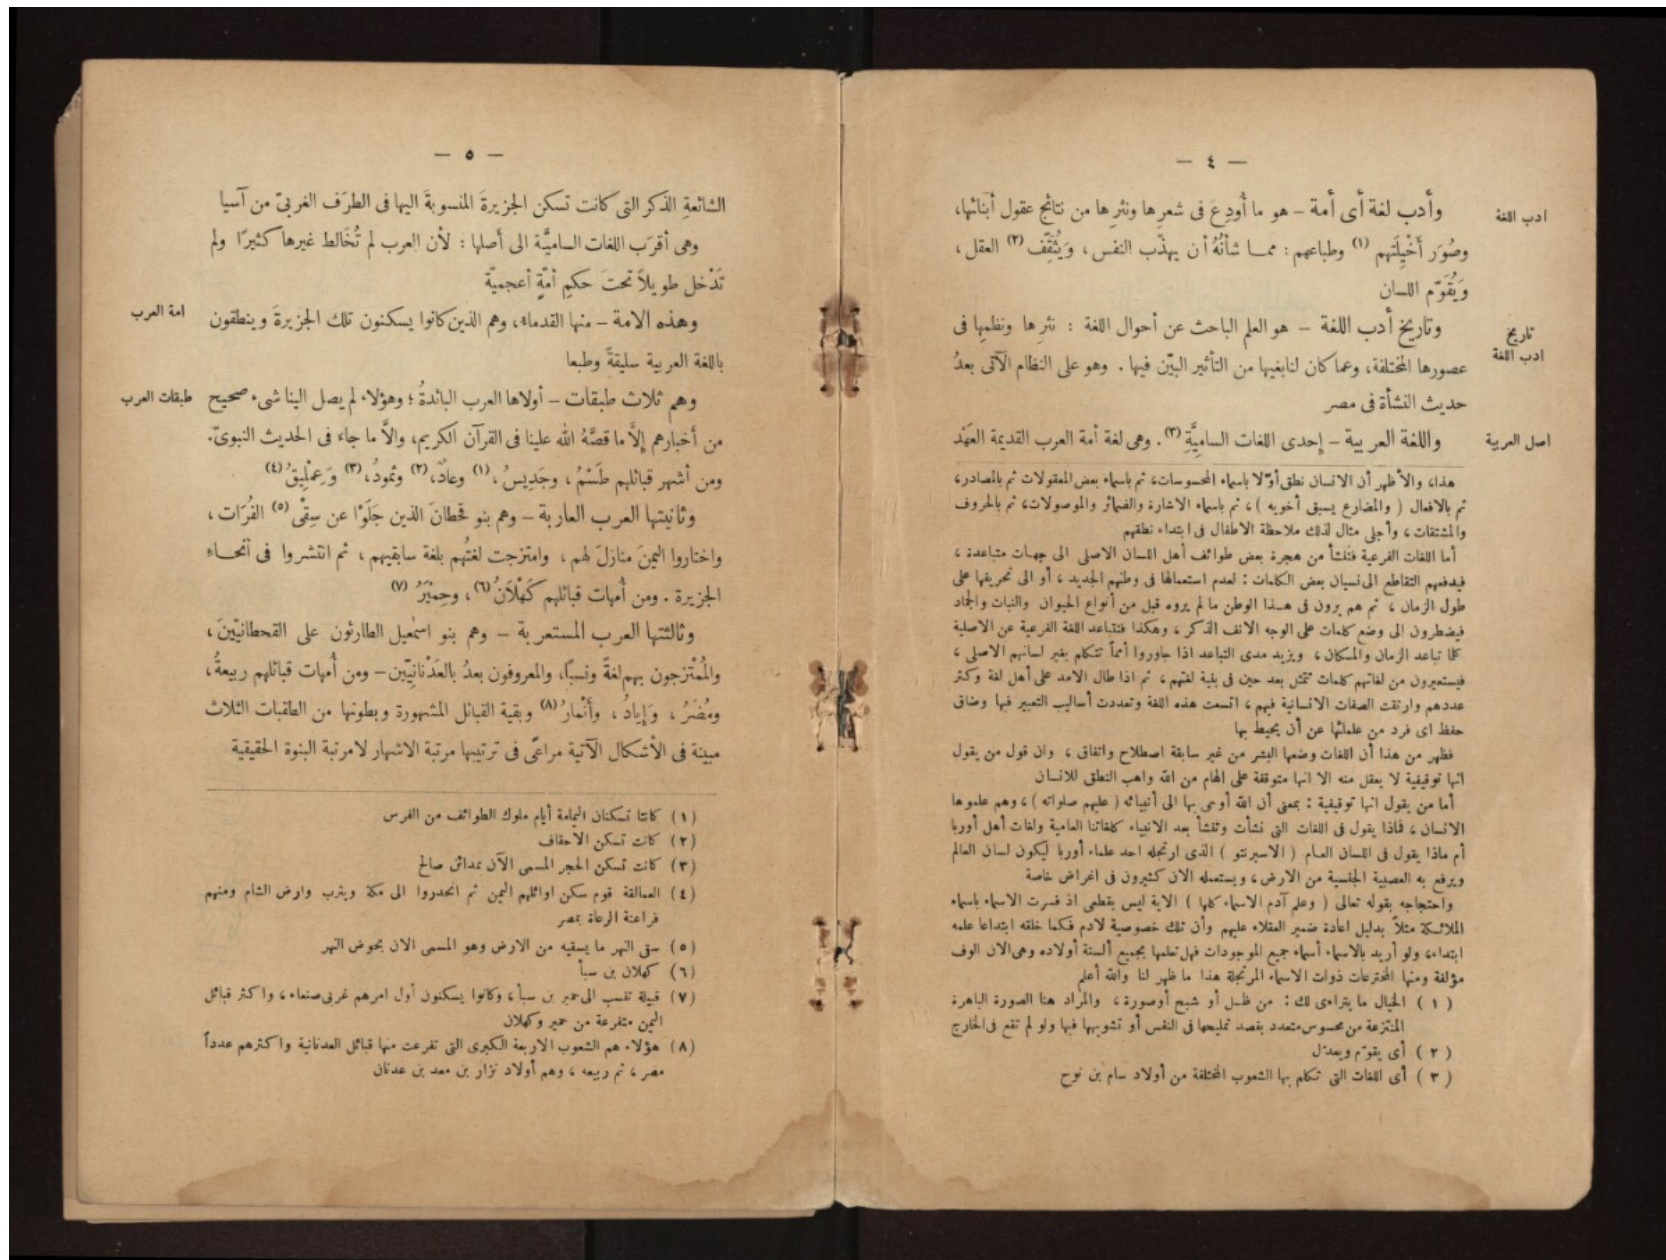 — ٤ —
ادب اللغة
وأدب لغة أى أمة – هو ما أُودِعَ فى شعرِها ونثرِها من نتائج عقول أبنائها،
وصُوَر أَخْيِلَتهم (١) وطباعهم : ممــا شأنُهُ أن يهذّب النفس ، وَيُثَقِّف (٢) العقل ،
وَيُقَوّم اللسان
تاريخ
ادب اللغة
وتاريخ أدب اللغة – هو العلم الباحث عن أحوال اللغة : نثرِها ونظمِها فى
عصورها المختلفة، وعما كان لنابغيها من التأثير البيّن فيها . وهو على النظام الآتى بعدُ
حديث النشأة فى مصر
اصل العربية
واللغة العربية – إحدى اللغات الساميَّةِ (٣) . وهى لغة أمة العرب القديمة العَهْد
هذا، والأظهر أن الانسان نطق أوّلا باسماء المحسوسات، ثم باسماء بعض المعقولات ثم بالمصادر،
ثم بالافعال ( والمضارع يسبق أخويه ) ، ثم باسماء الاشارة والضمائر والموصولات، ثم بالحروف
والمشتقات ، وأجلى مثال لذلك ملاحظة الاطفال فى ابتداء نطقهم
أما اللغات الفرعية فتنشأ من هجرة بعض طوائف أهل اللسان الاصلى الى جهات متباعدة ،
فيدفعهم التقاطع الى نسيان بعض الكلمات : لعدم استعمالها فى وطنهم الجديد ، أو الى تحريفها على
طول الزمان ، ثم هم يرون فى هـذا الوطن ما لم يروه قبل من أنواع الحيوان والنبات والجماد
فيضطرون الى وضع كلمات على الوجه الانف الذكر ، وهكذا فتتباعد اللغة الفرعية عن الاصلية
كلما تباعد الزمان والمكان ، ويزيد مدى التباعد اذا جاوروا أمماً تتكلم بغير لسانهم الاصلى ،
فيستعيرون من لغاتهم كلمات تتمثل بعد حين فى بقية لغتهم ، ثم اذا طال الامد على أهل لغة وكثر
عددهم وارتقت الصفات الانسانية فيهم ، اتسعت هذه اللغة وتعددت أساليب التعبير فيها وضاق
حفظ اى فرد من علمائها عن أن يحيط بها
فظهر من هذا أن اللغات وضعها البشر من غير سابقة اصطلاح واتفاق ، وان قول من يقول
انها توقيفية لا يعقل منه الا انها متوقفة على الهام من الله واهب النطق للانسان
أما من يقول انها توقيفية : بمعنى أن الله أوحى بها الى أنبيائه ( عليهم صلواته ) ، وهم علموها
الانسان ، فماذا يقول فى اللغات التى نشأت وتنشأ بعد الانبياء كلغاتنا العامية ولغات أهل أوربا
أم ماذا يقول فى اللسان العـام ( الاسبرنتو ) الذى ارتجله احد علماء أوربا ليكون لسان العالم
ويرفع به العصبية الجنسية من الارض ، ويستعمله الان كثيرون فى اغراض خاصة
واحتجاجه بقوله تعالى ( وعلم آدم الاسماء كلها ) الاية ليس بقطعى اذ فسرت الاسماء باسماء
الملائـكة مثلاً بدليل اعادة ضمير العقلاء عليهم وأن تلك خصوصية لادم فكما خلقه ابتداعا علمه
ابتداء، ولو أريد بالاسماء أسماء جميع الموجودات فهل تعلمها بجميع ألسنة أولاده وهى الان الوف
مؤلفة ومنها المخترعات ذوات الاسماء المرتجلة هذا ما ظهر لنا والله أعلم
( ١ ) الخيال ما يتراءى لك : من ظـل أو شبح أوصورة ، والمراد هنا الصورة الباهرة
المنتزعة من محسوس متعدد بقصد تمليحها فى النفس أو تشويهها فيها ولو لم تقع فى الخارج
( ٢ ) أى يقوّم ويعدّل
( ٣ ) أى اللغات التى تتكلم بها الشعوب المختلفة من أولاد سام بن نوح
— ٥ —
الشائعةِ الذكر التى كانت تسكن الجزيرةَ المنسوبةَ اليها فى الطرَف الغربىّ من آسيا
وهى أقرَب اللغات الساميَّة الى أصلها : لأن العرب لم تُخَالط غيرها كثيرًا ولم
تَدْخل طويلاً تحتَ حكمِ أمّةٍ أعجميّة
امة العرب
وهذه الامة – منها القدماء، وهم الذين كانوا يسكنون تلك الجزيرةَ وينطقون
باللغة العربية سليقةً وطبعا
طبقات العرب
وهم ثلاث طبقات – أولاها العرب البائدةُ ؛ وهؤلاء لم يصل الينا شىء صحيح
من أخبارهم إلَّا ما قصَّهُ الله علينا فى القرآن الكريم، والاَّ ما جاء فى الحديث النبوىّ.
ومن أشهر قبائلهم طَسْمُ ، وجَدِيسُ ، (١) وعادُ، (٢) وثمودُ، (٣) وَعِمْلِيقُ (٤)
وثانيتها العرب العاربة – وهم بنو قحطانَ الذين جَلَوْا عن سِقْىِ (٥) الفُرَات ،
واختاروا اليمنَ منازلَ لهم ، وامتزجت لغتُهم بلغة سابقيهم ، ثم انتشروا فى أنحـاء
الجزيرة . ومن أُمهات قبائلهم كَهْلَانُ (٦) ، وحِمْيَرُ (٧)
وثالثتها العرب المستعربة – وهم بنو اسمٰعيل الطارئون على القحطانيّينَ ،
والمُمْتزجون بهم لغةً ونسبًا، والمعروفون بعدُ بالعَدْنانِيِّين – ومن أُمهات قبائلهم ربيعةُ،
ومُضَرُ ، وَإيادُ ، وأَنْمارُ (٨) وبقية القبائل المشهورة وبطونها من الطقبات الثلاث
مبينة فى الأشكال الآتية مراعًى فى ترتيبها مرتبة الاشهار لا مرتبة البنوة الحقيقية
( ١ ) كانتا تسكنان اليمامة أيام ملوك الطوائف من الفرس
( ٢ ) كانت تسكن الأحقاف
( ٣ ) كانت تسكن الحجر المسمى الآن بمدائن صالح
( ٤ ) العمالقة قوم سكن اوائلهم اليمن ثم انحدروا الى مكة ويثرب وارض الشام ومنهم
فراعنة الرعاة بمصر
( ٥ ) سقى النهر ما يسقيه من الارض وهو المسمى الان بحوض النهر
( ٦ ) كهلان بن سبأ
( ٧ ) قبيلة تنسب الى حمير بن سبأ ، وكانوا يسكنون أول امرهم غربى صنعاء ، واكثر قبائل
اليمن متفرعة من حمير وكهلان
( ٨ ) هؤلاء هم الشعوب الاربعة الكبرى التى تفرعت منها قبائل العدنانية واكثرهم عدداً
مضر ، ثم ربيعه ، وهم أولاد نزار بن معد بن عدنان